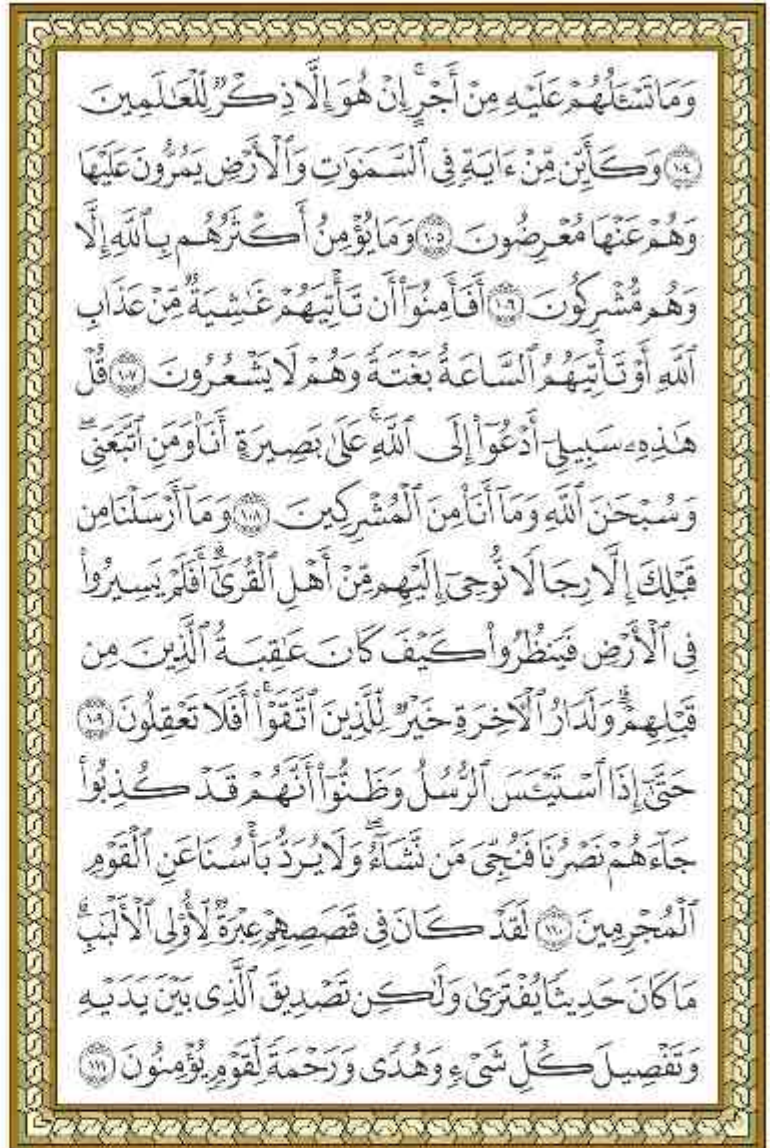 وَمَا تَسْـَٔلُهُمْ عَلَيْهِ مِنْ أَجْرٍۚ إِنْ هُوَ إِلَّا ذِكْرٌ لِّلْعَٰلَمِينَ
١٠٤ وَكَأَيِّن مِّنْ ءَايَةٍ فِى ٱلسَّمَٰوَٰتِ وَٱلْأَرْضِ يَمُرُّونَ عَلَيْهَا
وَهُمْ عَنْهَا مُعْرِضُونَ ١٠٥ وَمَا يُؤْمِنُ أَكْثَرُهُم بِٱللَّهِ إِلَّا
وَهُم مُّشْرِكُونَ ١٠٦ أَفَأَمِنُوٓا۟ أَن تَأْتِيَهُمْ غَٰشِيَةٌ مِّنْ عَذَابِ
ٱللَّهِ أَوْ تَأْتِيَهُمُ ٱلسَّاعَةُ بَغْتَةً وَهُمْ لَا يَشْعُرُونَ ١٠٧ قُلْ
هَٰذِهِۦ سَبِيلِىٓ أَدْعُوٓا۟ إِلَى ٱللَّهِۚ عَلَىٰ بَصِيرَةٍ أَنَا۠ وَمَنِ ٱتَّبَعَنِىۖ
وَسُبْحَٰنَ ٱللَّهِ وَمَآ أَنَا۠ مِنَ ٱلْمُشْرِكِينَ ١٠٨ وَمَآ أَرْسَلْنَا مِن
قَبْلِكَ إِلَّا رِجَالًا نُّوحِىٓ إِلَيْهِم مِّنْ أَهْلِ ٱلْقُرَىٰٓۗ أَفَلَمْ يَسِيرُوا۟
فِى ٱلْأَرْضِ فَيَنظُرُوا۟ كَيْفَ كَانَ عَٰقِبَةُ ٱلَّذِينَ مِن
قَبْلِهِمْۗ وَلَدَارُ ٱلْءَاخِرَةِ خَيْرٌ لِّلَّذِينَ ٱتَّقَوْا۟ۗ أَفَلَا تَعْقِلُونَ ١٠٩
حَتَّىٰٓ إِذَا ٱسْتَيْـَٔسَ ٱلرُّسُلُ وَظَنُّوٓا۟ أَنَّهُمْ قَدْ كُذِبُوا۟
جَآءَهُمْ نَصْرُنَا فَنُجِّىَ مَن نَّشَآءُۖ وَلَا يُرَدُّ بَأْسُنَا عَنِ ٱلْقَوْمِ
ٱلْمُجْرِمِينَ ١١٠ لَقَدْ كَانَ فِى قَصَصِهِمْ عِبْرَةٌ لِّأُو۟لِى ٱلْأَلْبَٰبِۗ
مَا كَانَ حَدِيثًا يُفْتَرَىٰ وَلَٰكِن تَصْدِيقَ ٱلَّذِى بَيْنَ يَدَيْهِ
وَتَفْصِيلَ كُلِّ شَىْءٍ وَهُدًى وَرَحْمَةً لِّقَوْمٍ يُؤْمِنُونَ ١١١